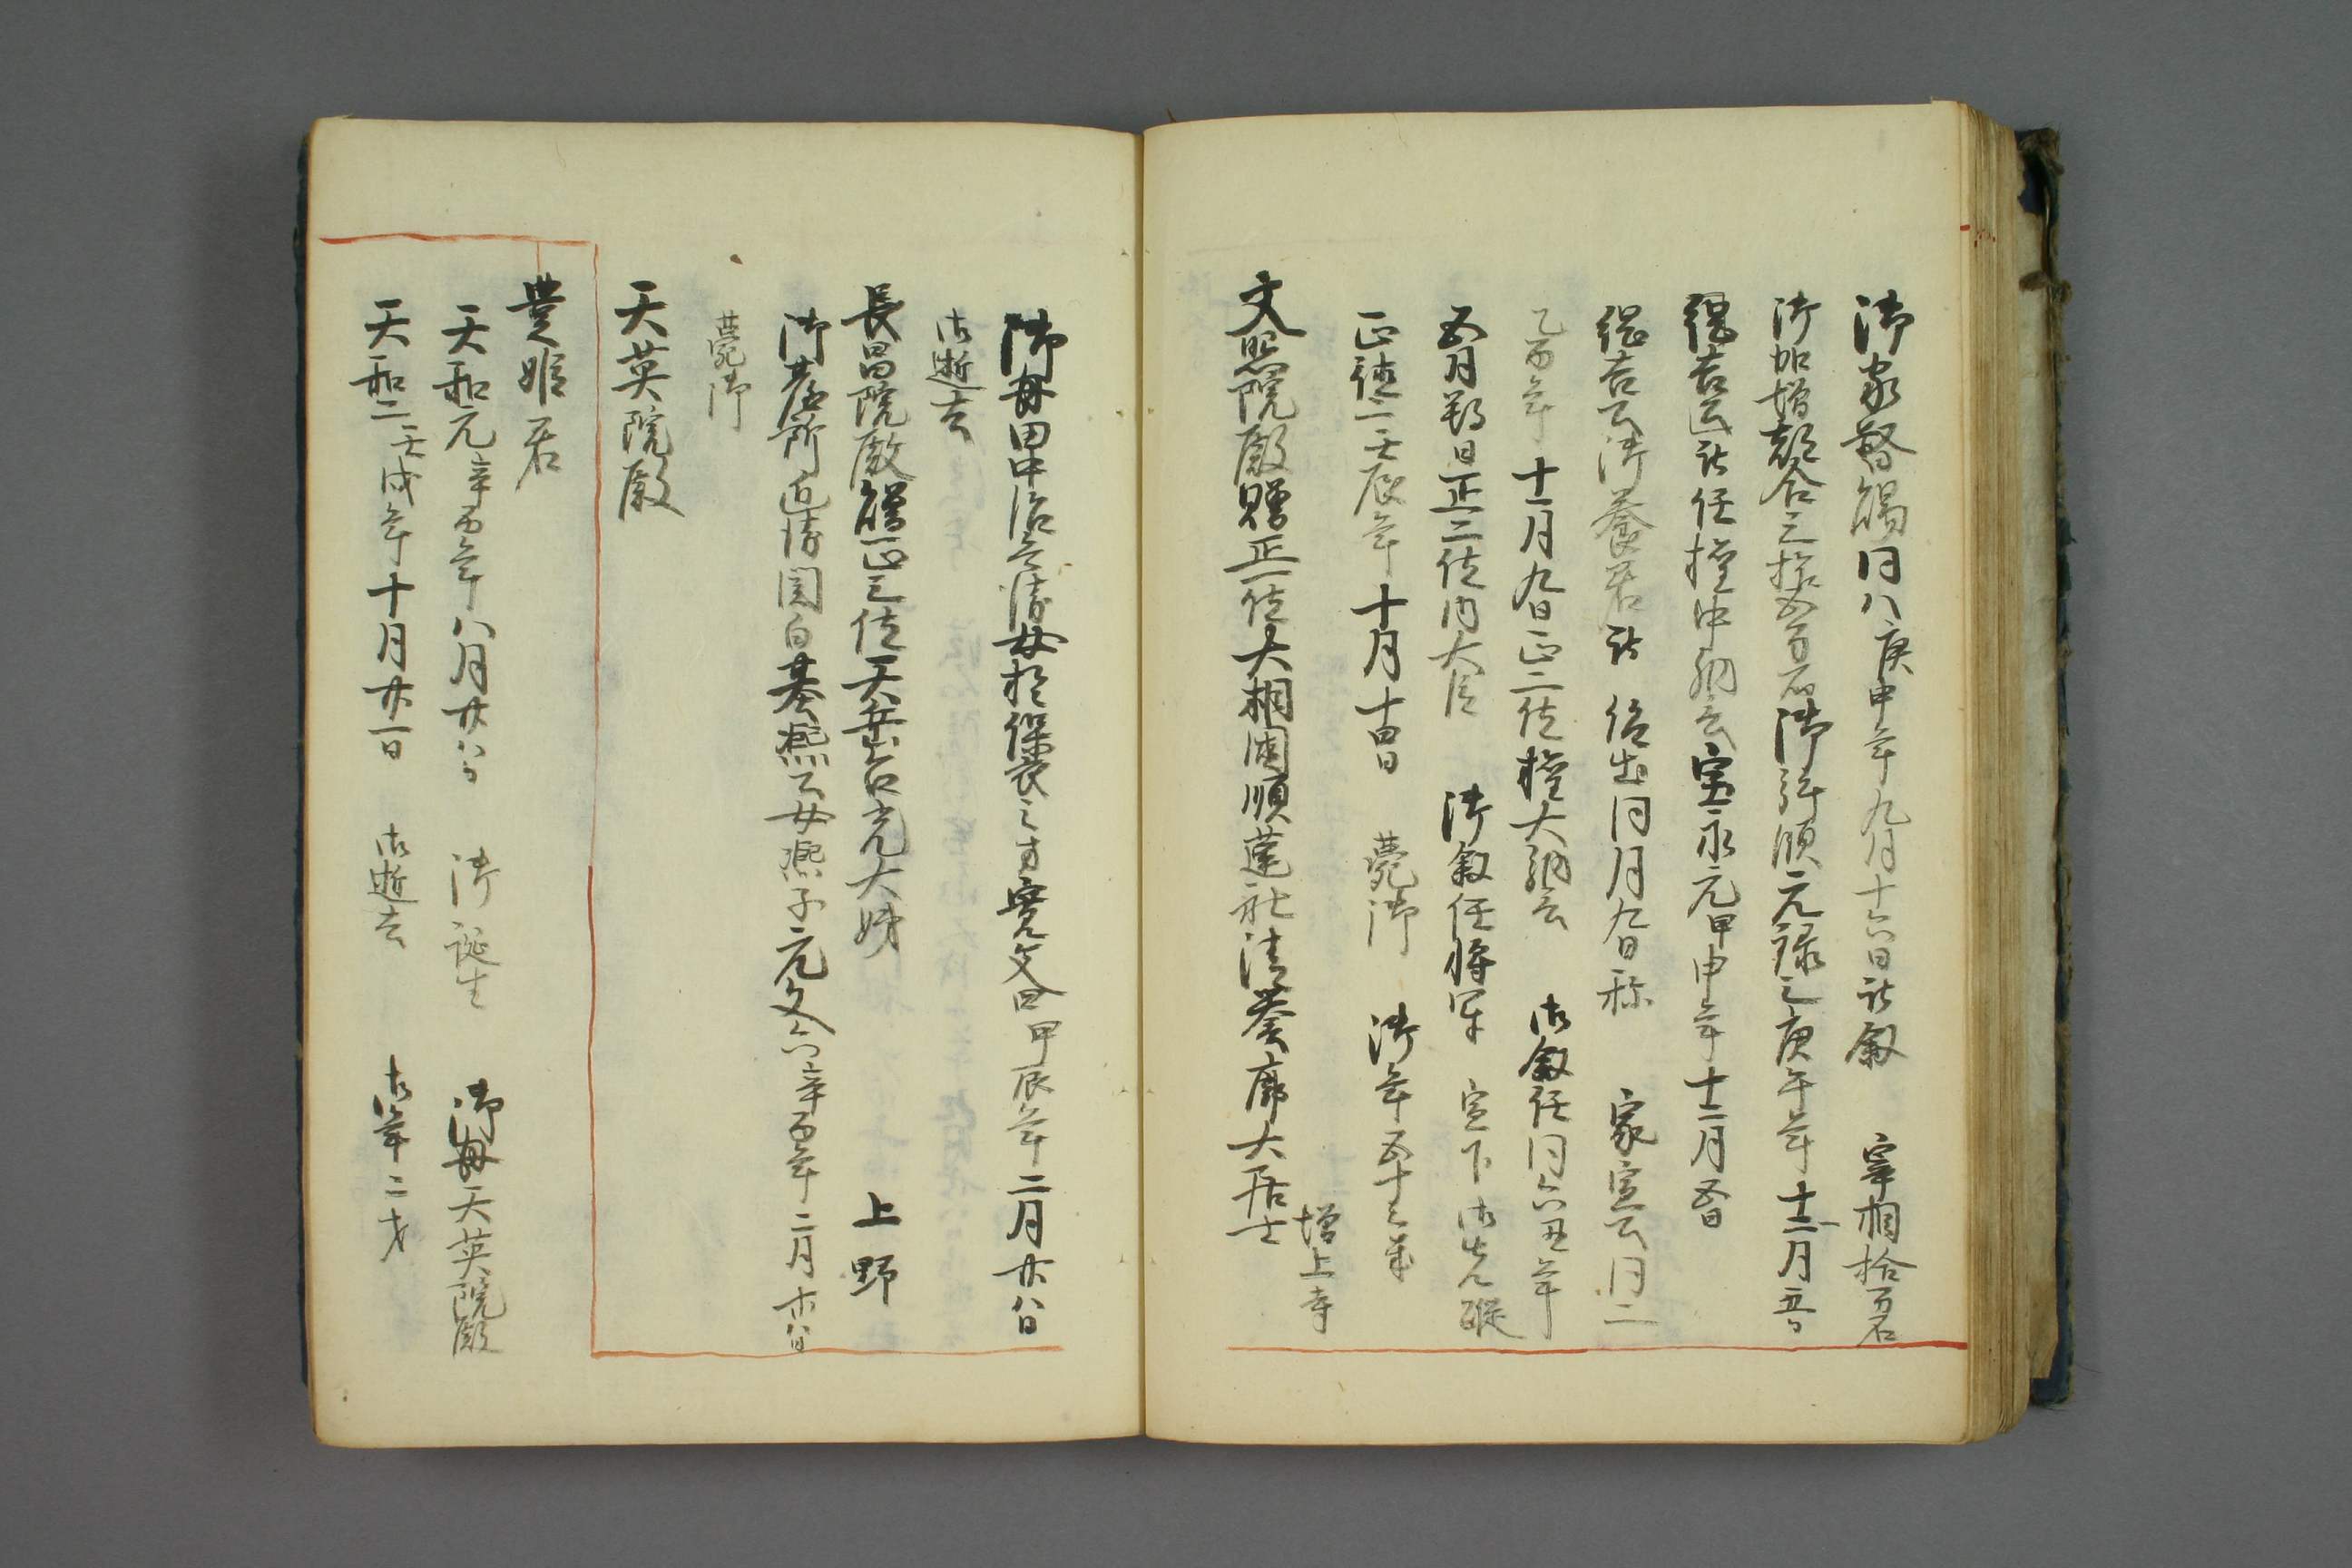 御家督賜同八庚申年九月十六日被敘　宰相拾万石
御加増都合三拾五万石御拝領元禄三庚午年十二月五日
綱吉公被任権中納言宝永元甲申年十二月五日
綱吉公御養君被　仰出同月九日称　家宣公同二
乙酉年　十一月九日正二位権大納言　御叙任同六丑年
五月朔日正二位内大臣　御叙任将軍　宣下御先蹤
正徳二壬辰年　十月十四日　薨御　御年五十三歳
増上寺
文照院殿贈正一位大相国順蓮社清誉廓大居士
御母田中治兵衛女於保良之方寛文四甲辰年二月廿八日
御逝去
長昌院殿贈正三位天岳台光大姉　上野
御台所近衛関白基熈公女熈子元文六辛酉年二月廿八日
薨御
天英院殿
豊姫君
天和元辛酉年八月廿六日　御誕生　御母天英院殿
天和二壬戌年十月廿一日　御逝去　御年二才